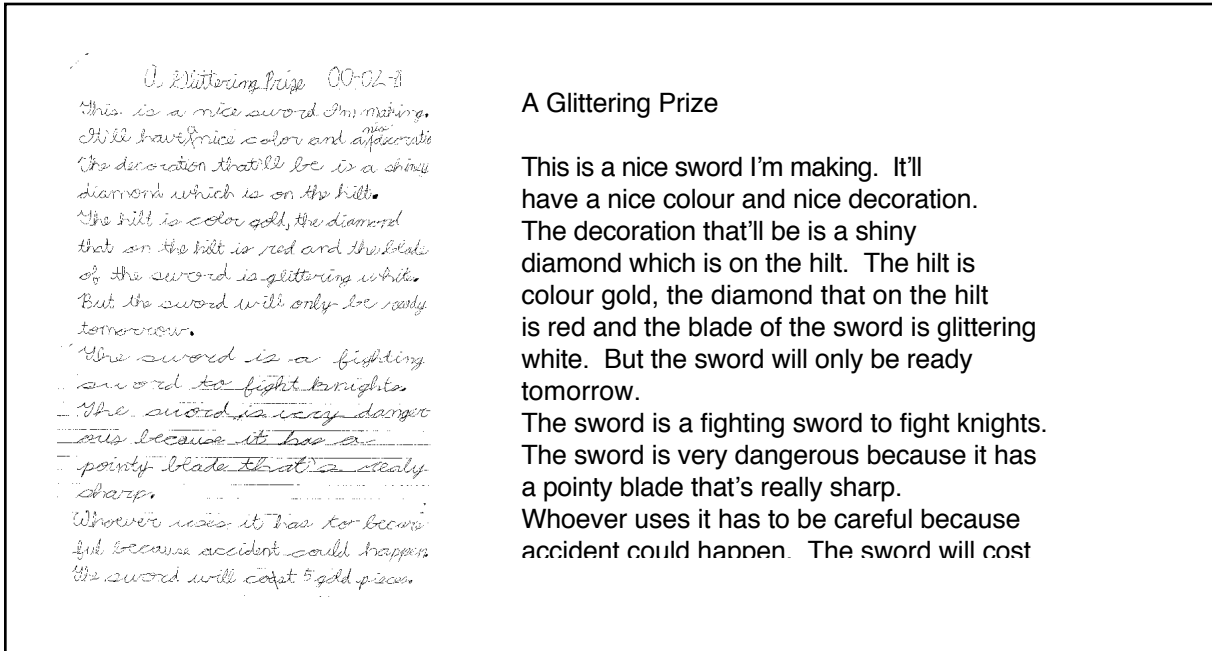 A Glittering Prize 00-02-11
This is a nice sword I'm making.
It'll have a nice color and a nice decoratio
The decoration that'll be is a shiney
diamond which is on the hilt.
The hilt is color gold, the diamond
that on the hilt is red and the blade
of the sword is glittering white.
But the sword will only be ready
tomorrow.
The sword is a fighting
sword to fight knights.
The sword is very danger
ous because it has a
pointy blade that's realy
sharp.
Whoever uses it has to be care
ful because accident could happen
The sword will cost 5 gold pieces.
A Glittering Prize
This is a nice sword I'm making. It'll
have a nice colour and nice decoration.
The decoration that'll be is a shiny
diamond which is on the hilt. The hilt is
colour gold, the diamond that on the hilt
is red and the blade of the sword is glittering
white. But the sword will only be ready
tomorrow.
The sword is a fighting sword to fight knights.
The sword is very dangerous because it has
a pointy blade that's really sharp.
Whoever uses it has to be careful because
accident could happen. The sword will cost